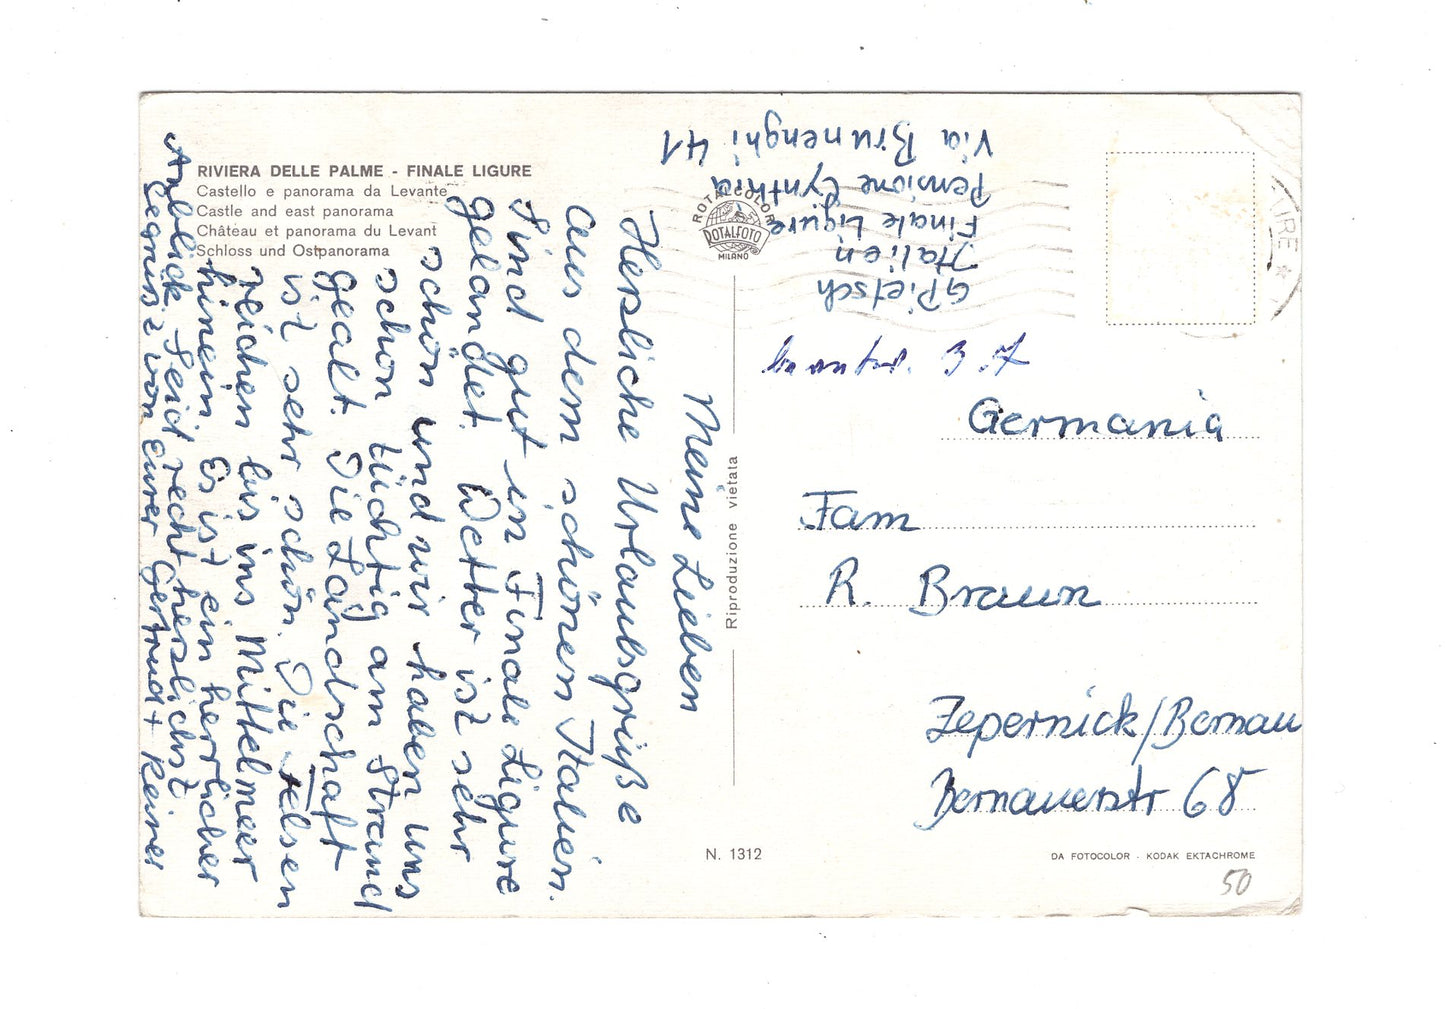 RIVIERA DELLE PALME - FINALE LIGURE
Castello e panorama da Levante
Castle and east panorama
Château et panorama du Levant
Schloss und Ostpanorama
Meine Lieben
Herzliche Urlaubsgrüße
aus dem schönen Italien.
Sind gut in Finale Ligure
gelandet. Wetter ist sehr
schön und wir haben uns
schon tüchtig am Strand
gealt. Die Landschaft
ist sehr schön. Die Felsen
reichen bis ins Mittelmeer
hinein Es ist ein herrlicher
Anblick. Seid recht herzlichst
Gegrüsst von eurer Gertrud + Reiner
Reproduzione vietata
ROTALCOLOR
ROTALFOTO
MILANO
G Pietsch
Italien
Finale Ligure
Pensione Cynthia
Via Brunenghi 41
URE *
3 7
Germania
Fam
R. Braun
Zepernick/Bernau
Bernauerstr 68
N. 1312
DA FOTOCOLOR - KODAK EKTACHROME
50